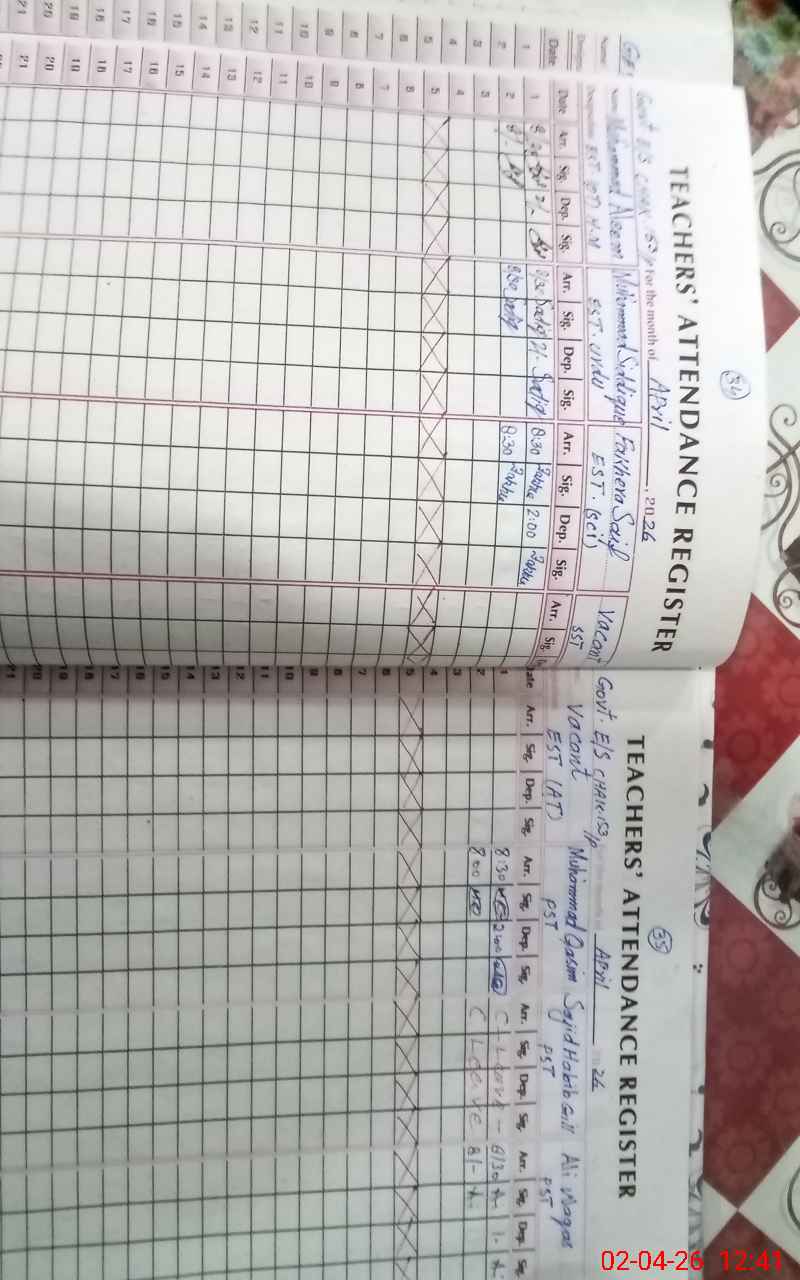 34
TEACHERS' ATTENDANCE REGISTER
Govt E/S CHAK 153/P For the month of April, 2026
Name Muhammad Aleem Muhammad Siddique Fakhera Saif Vacant
EST. URDU EST. (sci) SST
Date Arr. Sig. Dep. Sig. Arr. Sig. Dep. Sig. Arr. Sig. Dep. Sig. Arr. Sig.
1 8:30 2/- 8:30 Sadiq 2/- Sadiq 8:30 2:00
2 8/- 8:30 Sadiq 8:30
3
4
5
6
7
8
9
10
11
12
13
14
15
16
17
18
19
20
21
35
TEACHERS' ATTENDANCE REGISTER
Govt. E/S CHAK 153/P April 26
Vacant Muhammad Qasim Sajid Habib Gill Ali Waqas
EST (AT) PST PST PST
Date Arr. Sig. Dep. Sig. Arr. Sig. Dep. Sig. Arr. Sig. Dep. Sig. Arr. Sig. Dep. Sig.
1 8:30 2:00 C Leave 8/30
2 8:00 C Leave 8/-
3
4
5
6
7
8
9
10
11
12
13
14
15
16
17
18
19
20
21
02-04-26 12:41